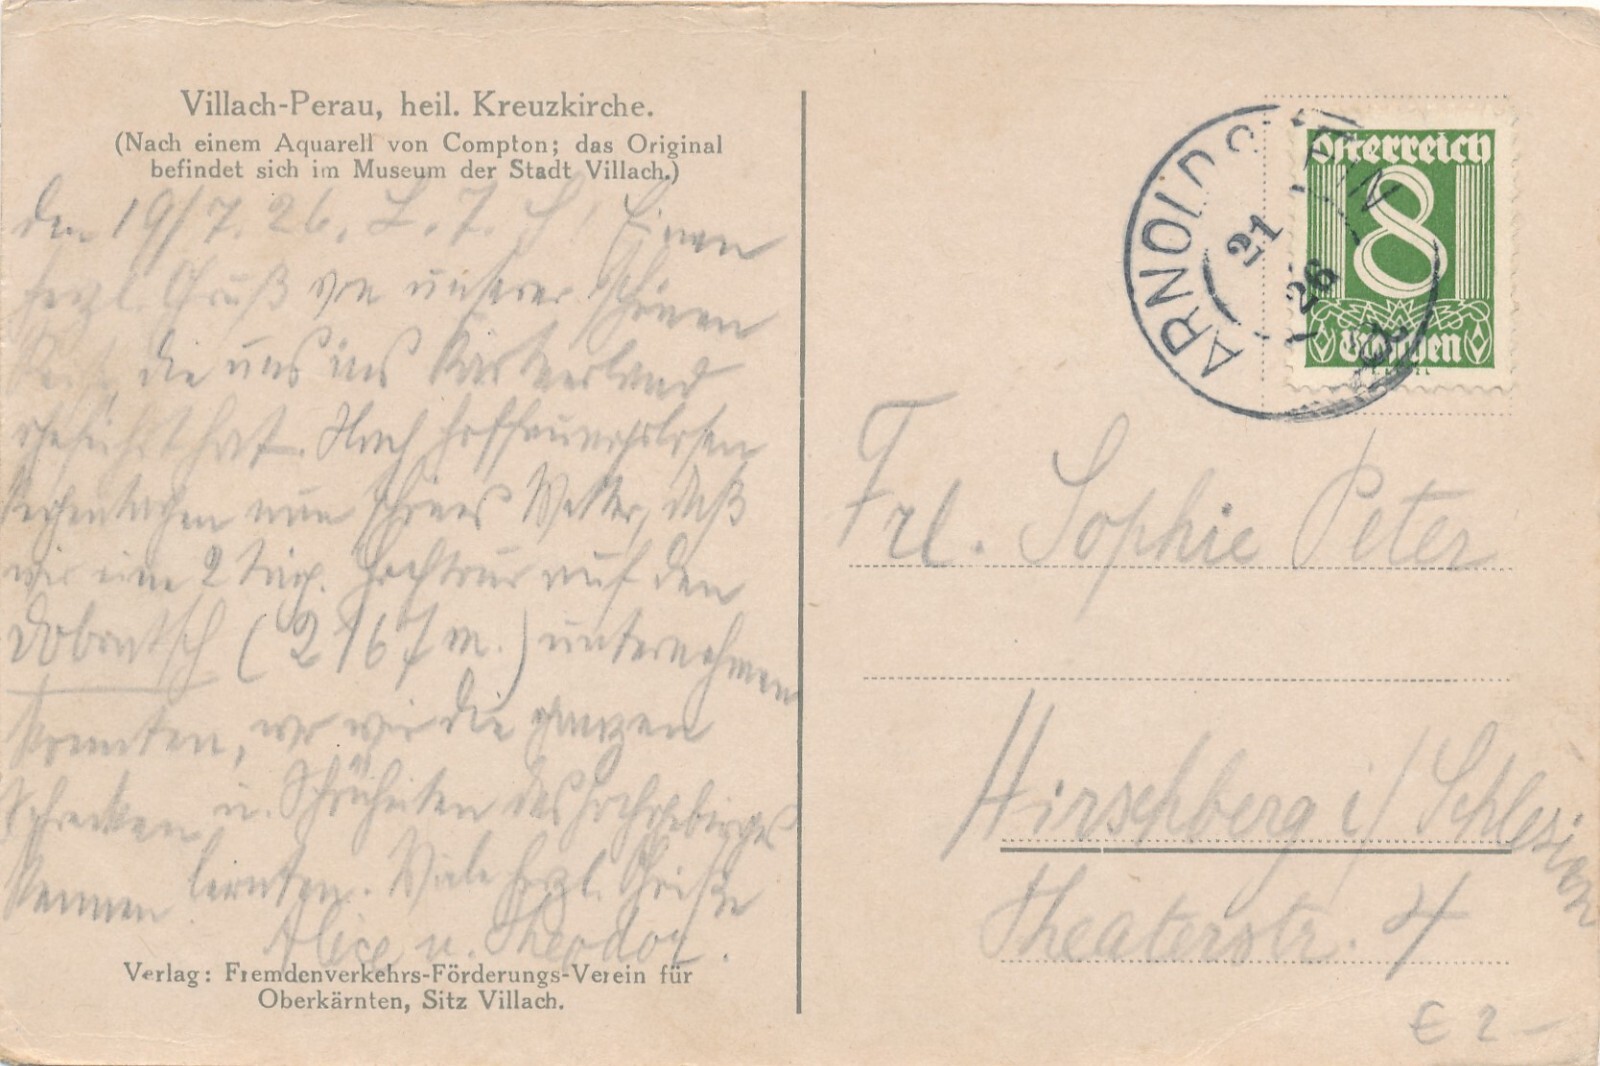 Villach-Perau, heil. Kreuzkirche.
(Nach einem Aquarell von Compton; das Original
befindet sich im Museum der Stadt Villach.)
den 19/7.26. L. S.! Einen
herzl. Gruß von unserer schönen
Reise, die uns ins Kärtnerland
geführt hat. Nach hoffnungslosen
Regentagen nun schönes Wetter, daß
wir eine 2 täg. Hochtour auf den
Dobratsch (2167 m.) unternehmen
konnten, wo wir die ganzen
Schrecken u. Schönheiten des Hochgebirges
kennen lernten. Viele herzl. Grüße
Alice u. Theodor.
Verlag: Fremdenverkehrs-Förderungs-Verein für
Oberkärnten, Sitz Villach.
ARNOLDSTEIN
21
26
Österreich
8
Groschen
Frl. Sophie Peter
Hirschberg i/Schlesien
Theaterstr. 4
€ 2-